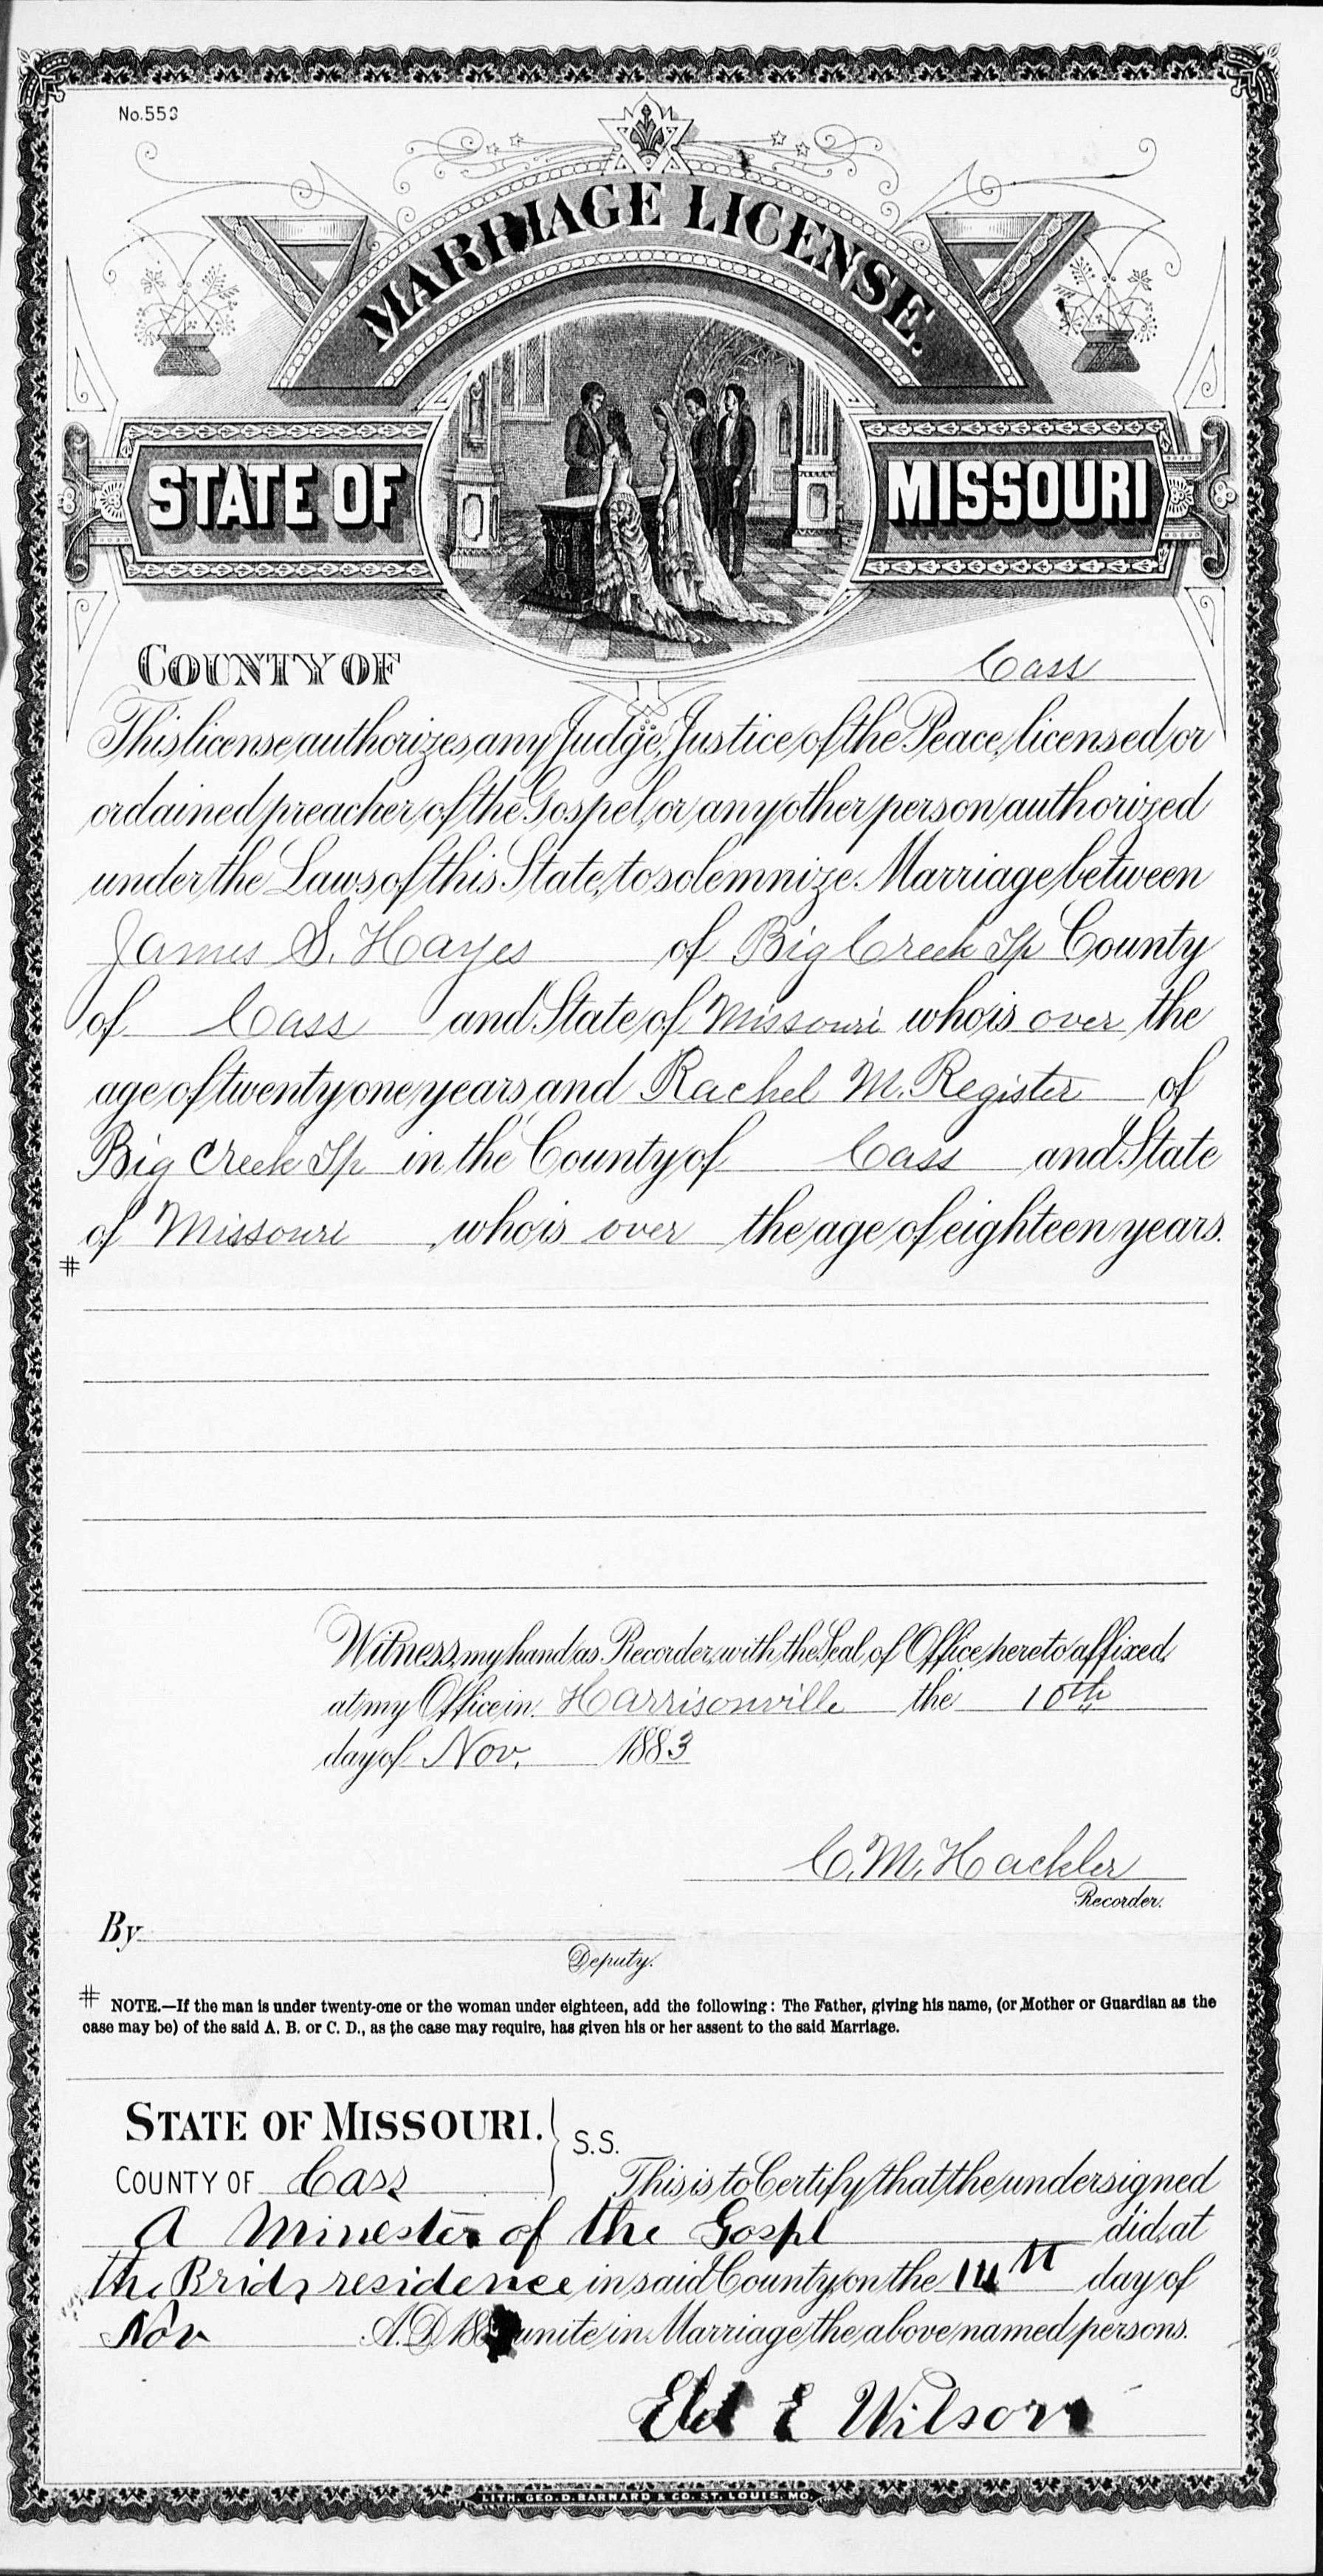 No.553
MARRIAGE LICENSE.
STATE OF MISSOURI
COUNTY OF Cass
This license authorizes any Judge, Justice of the Peace, licensed or
ordained preacher of the Gospel, or any other person authorized
under the Laws of this State, to solemnize Marriage between
James S. Hayes of Big Creek Tp County
of Cass and State of Missouri who is over the
age of twenty one years and Rachel M. Register of
Big Creek Tp in the County of Cass and State
of Missouri who is over the age of eighteen years.
#
Witness my hand as Recorder, with the Seal of Office hereto affixed,
at my Office in Harrisonville the 10th
day of Nov. 1883
C. M. Hackler
Recorder.
By
Deputy.
# NOTE.—If the man is under twenty-one or the woman under eighteen, add the following: The Father, giving his name, (or Mother or Guardian as the
case may be) of the said A. B. or C. D., as the case may require, has given his or her assent to the said Marriage.
STATE OF MISSOURI. } S.S.
COUNTY OF Cass This is to Certify that the undersigned
a Minester of the Gospl did, at
the Brids residence in said County, on the 14th day of
Nov A.D. 188 unite in Marriage the above named persons.
Eld E Wilson
LITH. GEO. D. BARNARD & CO. ST. LOUIS. MO.